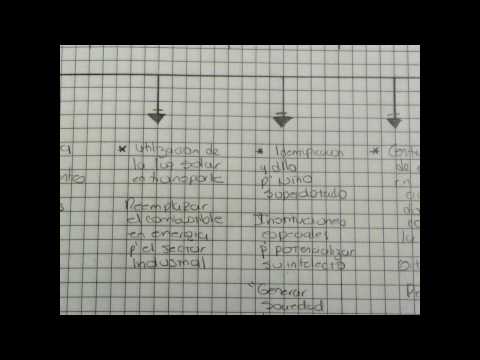 * Utilización de
la luz solar
en transporte
Reemplazar
el combustible
en energía
p' el sector
Industrial
* Identificación
y dllo
p' niño
superdotado
Instituciones
especiales
p' potencializar
su intelecto
Generar
sociedad
* Cont
de
la